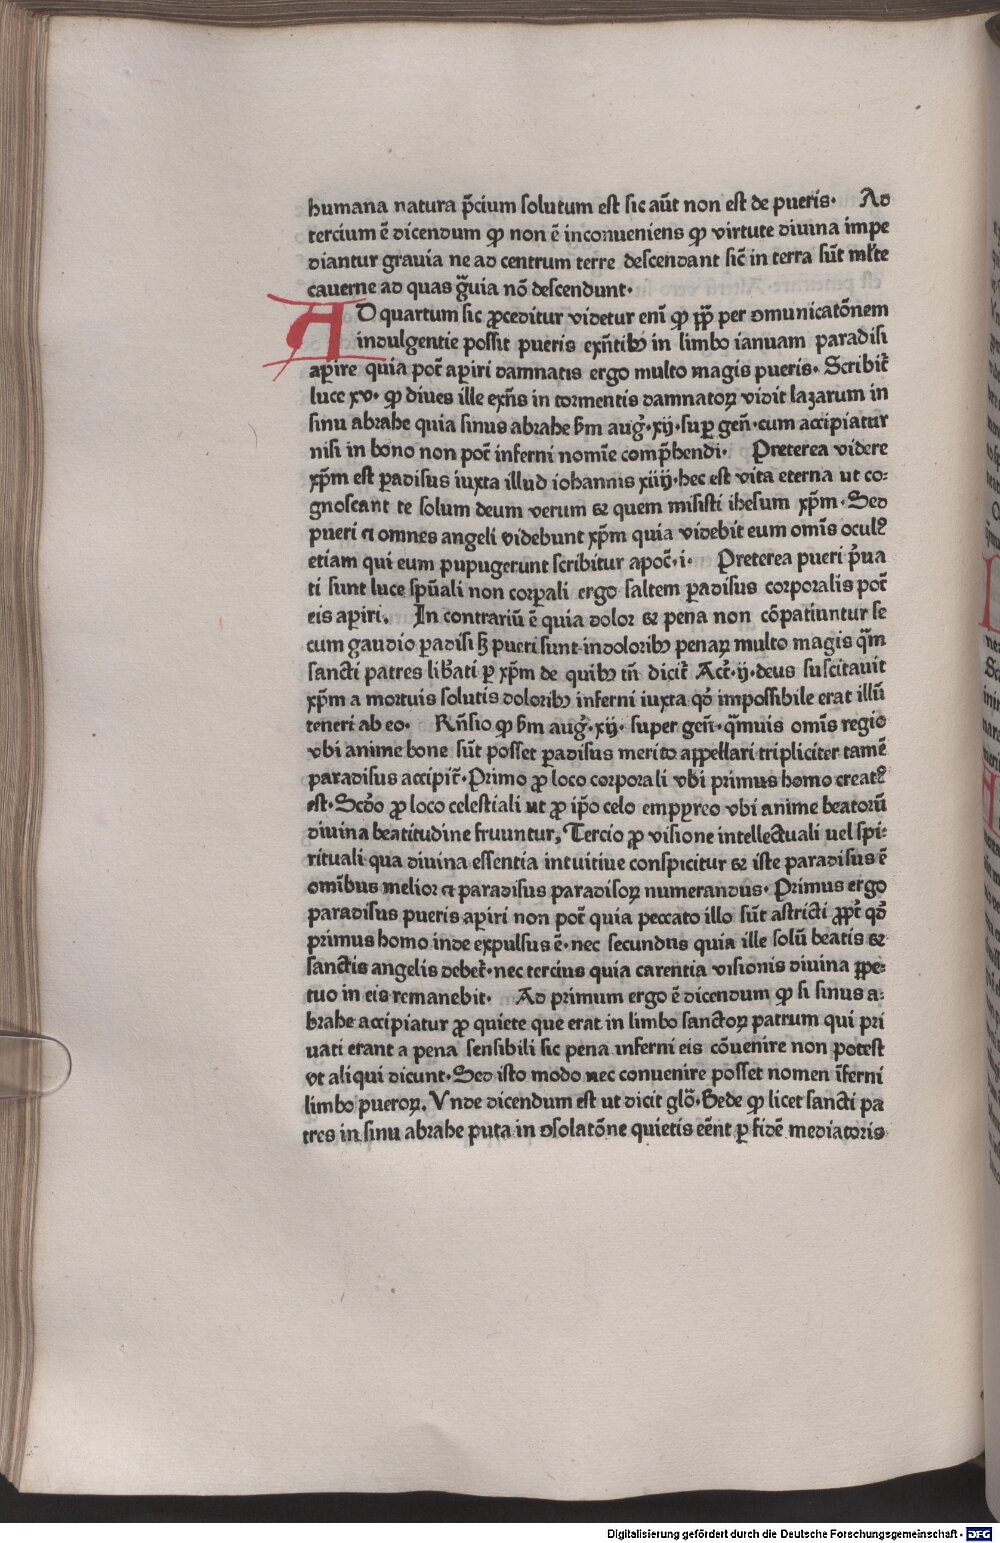 humana natura p̄cium solutum est sic aūt non est de pueris· Ad
tercium ē dicendum ꝙ non ē inconueniens ꝙ virtute diuina impe
diantur grauia ne ad centrum terre descendant sic̄ in terra sūt ml̄te
cauerne ad quas ḡuia nō descendunt·
AD quartum sic ꝓceditur videtur eni̅ ꝙ pp̄ per ꝯmunicatōnem
indulgentie possit pueris exn̄tibꝫ in limbo ianuam paradisi
aꝑire quia pot̄ aꝑiri damnatis ergo multo magis pueris· Scribit̄
luce xv· ꝙ diues ille exn̄s in tormentis damnatoꝝ vidit lazarum in
sinu abrahe quia sinus abrahe ẜm auḡ·xij·suꝑ gen̄·cum accipiatur
nisi in bono non pot̄ inferni nomīe comp̄hendi· Preterea videre
xp̄m est ꝑadisus iuxta illud iohannis xiiij·hec est vita eterna ut co⸗
gnoscant te solum deum verum ⁊ quem misisti ihesum xp̄m·Sed
pueri ⁊ omnes angeli videbunt xp̄m quia videbit eum omīs ocul9
etiam qui eum pupugerunt scribitur apoc̄·i· Preterea pueri p̄ua
ti sunt luce spūali non corꝑali ergo saltem ꝑadisus corporalis pot̄
eis aꝑiri. In contrariū ē quia dolor ⁊ pena non cōpatiuntur se
cum gaudio ꝑadisi sꝫ pueri sunt in doloribꝫ penaꝝ multo magis q̄m
sancti patres lib̄ati ꝑ xp̄m de quibꝫ tn̄ dicit̄ Act̄·ij·deus suscitauit
xp̄m a mortuis solutis doloribꝫ inferni iuxta qd̄ impossibile erat illū
teneri ab eo· Rn̄sio ꝙ ẜm auḡ·xij· super gen̄·q̄muis omīs regio
vbi anime bone sūt posset ꝑadisus merito appellari tripliciter tamē
paradisus accipit̄·Primo ꝓ loco corporali vbi primus homo creat9
est·Scd̄o ꝓ loco celestiali ut ꝓ ip̄o celo empyreo vbi anime beatorū
diuina beatitudine fruuntur, Tercio ꝓ visione intellectuali uel spi⸗
rituali qua diuina essentia intuitiue conspicitur ⁊ iste paradisus ē
omībus melior ⁊ paradisus paradisoꝝ numerandus· Primus ergo
paradisus pueris aꝑiri non pot̄ quia peccato illo sūt astricti ꝓpt̄ qd̄
primus homo inde expulsus ē·nec secundus quia ille solū beatis ⁊
sanctis angelis debet̄·nec tercius quia carentia visionis diuina ꝑpe⸗
tuo in eis remanebit· Ad primum ergo ē dicendum ꝙ si sinus a⸗
brahe accipiatur ꝓ quiete que erat in limbo sanctoꝝ patrum qui pri
uati erant a pena sensibili sic pena inferni eis cōuenire non potest
vt aliqui dicunt·Sed isto modo nec conuenire posset nomen īferni
limbo pueroꝝ. Vnde dicendum est ut dicit glo̅·Bede ꝙ licet sancti pa
tres in sinu abrahe puta in ꝯsolatōne quietis eēnt ꝑ fidē mediatoris
Digitalisierung gefördert durch die Deutsche Forschungsgemeinschaft - DFG